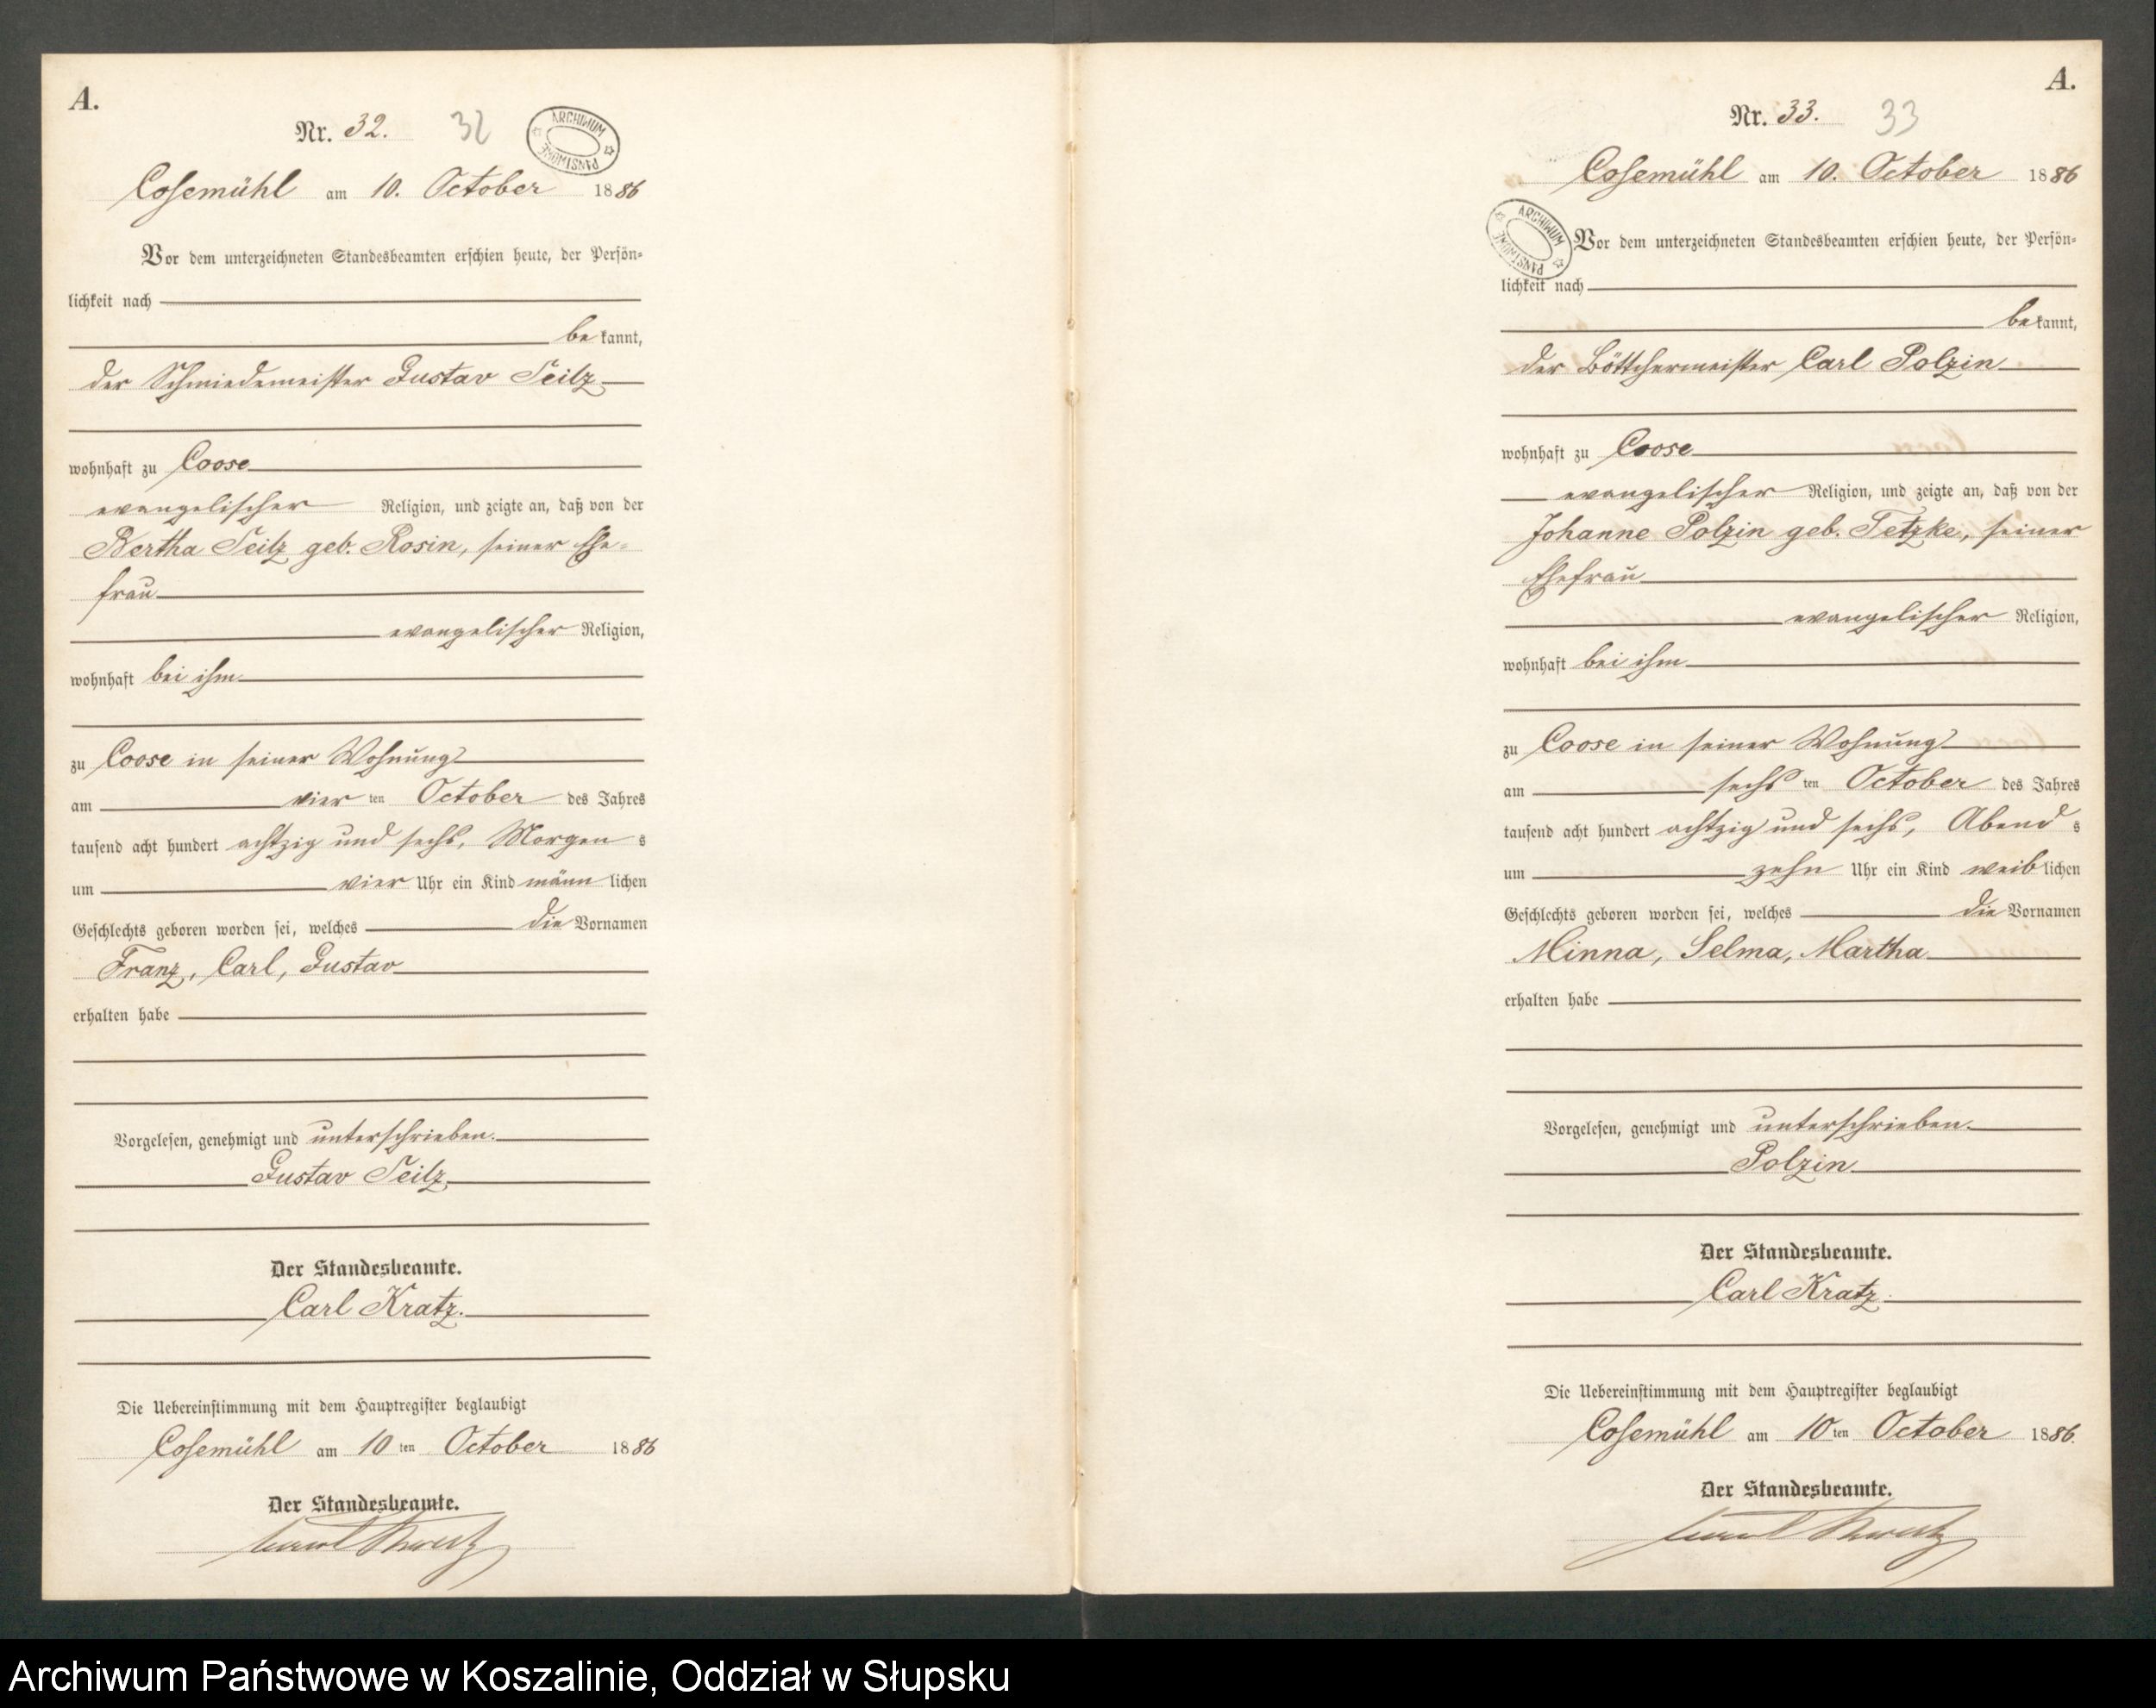 A.
Nr. 32. 32
ARCHIWUM PAŃSTWOWE
Cosemühl am 10. October 1886
Vor dem unterzeichneten Standesbeamten erschien heute, der Persön-
lichkeit nach
bekannt,
der Schmiedemeister Gustav Seilz
wohnhaft zu Coose
evangelischer Religion, und zeigte an, daß von der
Bertha Seilz geb. Rosin, seiner Ehe-
frau
evangelischer Religion,
wohnhaft bei ihm
zu Coose in seiner Wohnung
am vierten October des Jahres
tausend acht hundert achtzig und sechs, Morgens
um vier Uhr ein Kind männlichen
Geschlechts geboren worden sei, welches die Vornamen
Franz, Carl, Gustav
erhalten habe
Vorgelesen, genehmigt und unterschrieben.
Gustav Seilz
Der Standesbeamte.
Carl Kratz.
Die Uebereinstimmung mit dem Hauptregister beglaubigt
Cosemühl am 10ten October 1886
Der Standesbeamte.
Carl Kratz
A.
Nr. 33. 33
Cosemühl am 10. October 1886
ARCHIWUM PAŃSTWOWE
Vor dem unterzeichneten Standesbeamten erschien heute, der Persön-
lichkeit nach
bekannt,
der Böttchermeister Carl Polzin
wohnhaft zu Coose
evangelischer Religion, und zeigte an, daß von der
Johanne Polzin geb. Tetzke, seiner
Ehefrau
evangelischer Religion,
wohnhaft bei ihm
zu Coose in seiner Wohnung
am sechsten October des Jahres
tausend acht hundert achtzig und sechs, Abends
um zehn Uhr ein Kind weiblichen
Geschlechts geboren worden sei, welches die Vornamen
Minna, Selma, Martha
erhalten habe
Vorgelesen, genehmigt und unterschrieben.
Polzin
Der Standesbeamte.
Carl Kratz.
Die Uebereinstimmung mit dem Hauptregister beglaubigt
Cosemühl am 10ten October 1886.
Der Standesbeamte.
Carl Kratz
Archiwum Państwowe w Koszalinie, Oddział w Słupsku